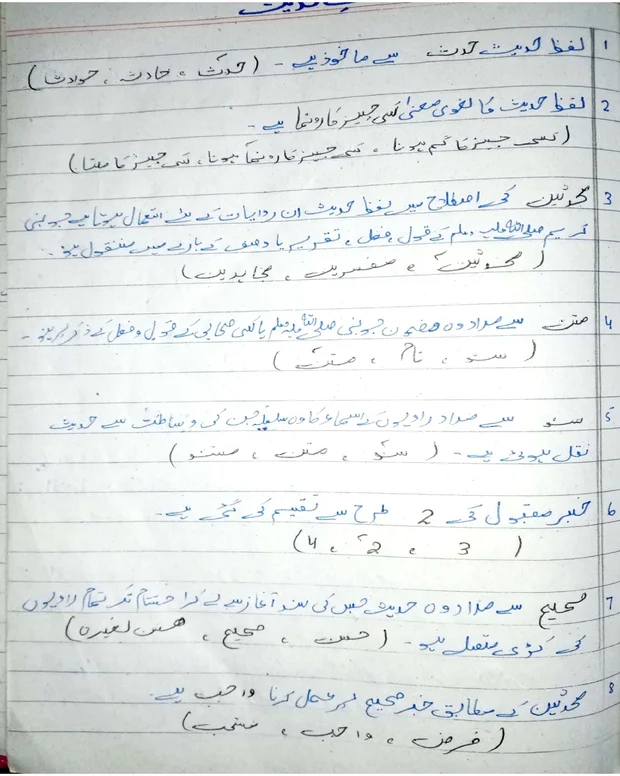 حدیث
1 لفظ حدیث حدث سے ماخوذ ہے - (حدث ، حادث ، حوادث)
2 لفظ حدیث کا لغوی معنی کسی چیز کا رونما ہے -
(کسی چیز کا گم ہونا ، کسی چیز کا رونما ہونا ، کسی چیز کا ملنا)
3 محدثین کی اصطلاح میں لفظ حدیث ان روایات کے لئے استعمال ہوتا ہے جو نبی
کریم صلی اللہ علیہ وسلم کے قول ، فعل ، تقریر یا وصف کے بارے میں منقول ہو -
(محدثین ، مفسرین ، مجاہدین)
4 متن سے مراد وہ مضمون جو نبی صلی اللہ علیہ وسلم یا کسی صحابی کے قول و فعل کے ذکر پر ہو -
(سند ، نام ، متن)
5 سند سے مراد راویوں کے اسماء کا وہ سلسلہ جن کی وساطت سے حدیث
نقل ہوئی ہے - (سند ، متن ، مسند)
6 خبر مقبول کی 2 طرح سے تقسیم کی گئی ہے -
(3 ، 2 ، 4)
7 صحیح سے مراد وہ حدیث جس کی سند آغاز سے لے کر اختتام تک تمام راویوں
کی کڑی متصل ہو - (حسن ، صحیح ، حسن لغیرہ)
8 محدثین کے مطابق خبر صحیح پر عمل کرنا واجب ہے -
(فرض ، واجب ، مستحب)